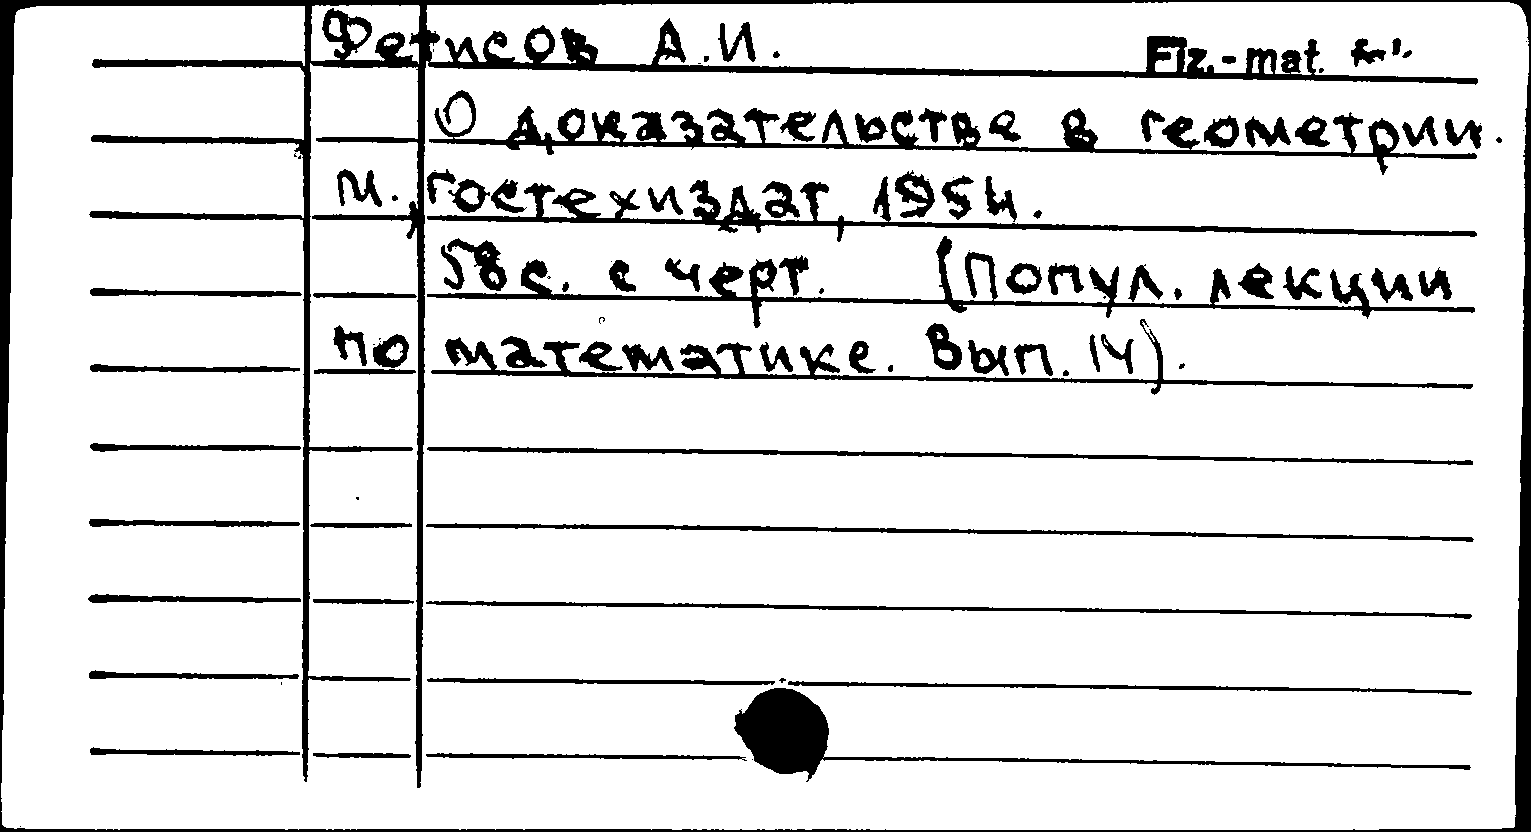 Фетисов А.И. Fiz.-mat.
О доказательстве в геометрии.
М., Гостехиздат, 1954.
58 с. с черт. (Попул. лекции
по математике. Вып. 14).